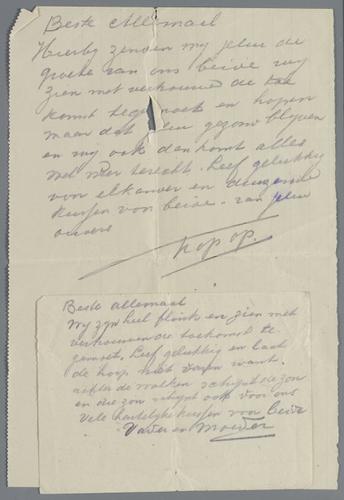 Beste Allemaal
Hierby zenden wy jelui de
groete van ons beide wy
zien met vertrouwe de toe
komst tegemoet en hopen
maar dat jelui gezond blyven
en wy ook dan komt alles
wel weer terecht. Leef gelukkig
voor elkander en duizend
kussen van beide. van jelui
ouders
hop op.
Beste allemaal
Wy zyn heel flink en zien met
vertrouwen de toekomst te
gemoet. Leef gelukkig en laat
de hoop niet varen want.
achter de wolken schynt de zon
en die zon schynt ook voor ons
Vele hartelyke kussen van beide
Vader en Moeder